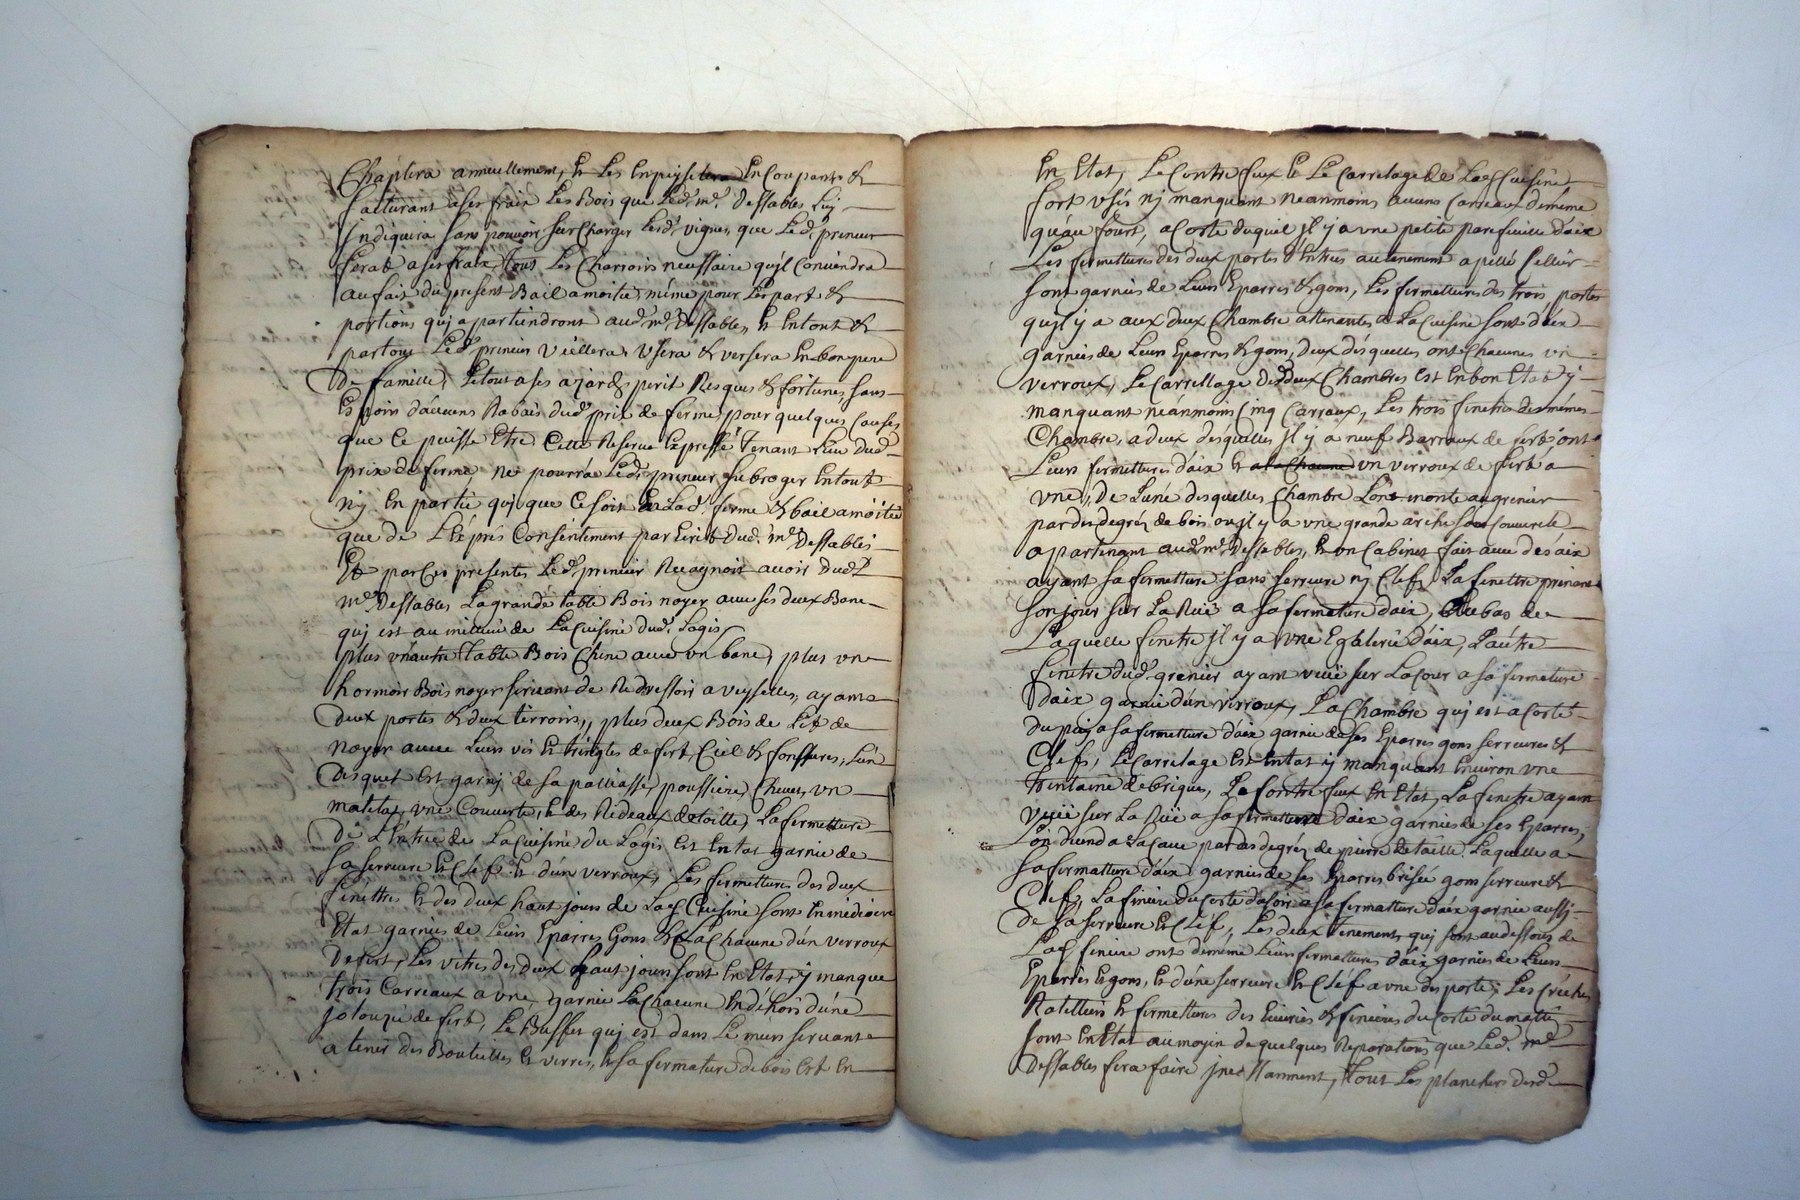 Chaplera annuellement, & Les Enpeyselera En Coupant &
facturant a ses frais Les Bois que Led. mr. Dessables Luy
Indiquera sans pouvoir surCharger Lesd. vignes, que Led. preneur
ferat a ses frais, tout Les Charrois neussaire qujl Conviendra
au fait du present Bail a moitié, méme pour Les part &
portions quj apartiendront aud. mr. Dessables, & En tout &
partout Led. preneur Viellera, Usera & versera En bon pere
De famille, Le tout a ses azards, peril Risques & fortunes, sans
Espoir d'aucuns Rabais dud. prix de ferme, pour quelques Causes
que Ce puisse Etre, Cette Reserve Expressé Tenant Lieu Dud.
prix de ferme, ne pourra Led. preneur subroger En tout
nj En partie quj que Ce soit a Lad. ferme & bail a moitié
que de L'Exprés Consentement par Ecrit Dud. mr. Dessables
Et par Ces presentes Led. preneur Recognoit avoir Dud.
mr. Dessables La grande table Bois noyer avec ses deux Banc
quj est au millieu de La Cuisine dud. Logis
plus un'autre table Bois Chene avec un banc, plus une
hormoir Bois noyer servant de Redressoir a veysselles, ayant
Deux portes & deux tirroirs, plus deux Bois de Lit de
noyer avec Leurs vis & tringles de fert, Ciel & fonssures, L'un
Desquel est garnj de sa palliasse, poussiere, Chevet, un
matelas, une Couverte, & des Redeaux de toille, La fermetture
De L'Entrée de La Cuisine du Logis Est En Etat garnie de
sa serreure & Clef & d'un verroux, Les fermettures des deux
fenettres & des deux haut jours de Lad. Cuisine sont En mediocre
Etat garnies de Leurs Eparres Gons & La Chacune d'un verroux
De fert, Les vitres des deux haut jours sont En Etat, y manque
trois Carreaux a une, garnie La Chacune En déhors d'une
jalouzie de fert, Le Buffet quj est dans Le murs servant
a tenir des Bouteilles & verres, & sa fermature de bois Est En
En Etat, Le Contre feux & Le Carrelage de Lad. Cuisine
fort usés nj manquant neanmoins aucuns Carreaux de méme
qu'au fourt, a Costé duquel jl y a une petite parefeuille d'aix
Les fermettures des deux portes d'Entrées au tenement apellé Cellier
sont garnies de Leurs Eparres & gons, Les fermettures des trois portes
qujl y a aux deux Chambre attenantes de La Cuisine sont d'aix
garnies de Leurs Eparres & gons, deux desquelles ont Chacunes un
verroux, Le Carrellage Desd. deux Chambres Est En bon Etat y
manquant néanmoins Cinq Carraux, Les trois finetres des mémes
Chambre, a deux desquelles jl y a neuf Barraux de fert, ont
Leurs fermettures d'aix & un verroux de fert a
une, De L'une desquelles Chambre L'ont monte au grenier
par des degrés de bois ou jl y a une grande arche sans Couvercle
apartenant aud. mr. Dessables, & un Cabinet fait avec des aix
ayant sa fermetture sans serreure nj Clef, La finettre prenant
son jour sur La Rüe a sa fermature d'aix, au bas de
Laquelle finetre jl y a une Egalerie d'aix, L'autre
finetre dud. grenier ayant veüe sur La Cour a sa fermature
d'aix garnie d'un verroux, La Chambre quj est a Costé
du puy a sa fermetture d'aix garnie de ses Eparres gons serreures &
Clefs, Le Carrelage Est En Etat y manquant Environ une
Trentaine de briques, Le Contre feux En Etat, La finetre ayant
Veüe sur La Rüe a sa fermetture d'aix garnies de ses Eparres,
L'on dessend a La Cave par des degrés de pierre de taille Laquelle a
sa fermatture d'aix garnies de ses Eparres brisée gons serreure &
Clef, La finiere du Costé du soir a sa fermatture d'aix garnie aussj
De sa serreure & Clef, Les deux tenements quj sont au dessous de
Lad. finiere ont de méme Leurs fermettures d'aix garnies de Leurs
Eparres & gons, & d'une serreure & Clef a une des portes, Les Créches
Ratelliers & fermettures des Ecuries & finieres du Costé du matin
sont En Etat au moyen de quelques Reparations que Led. mr.
Dessables fera faire jncessamment, Tout Les planchers desd.